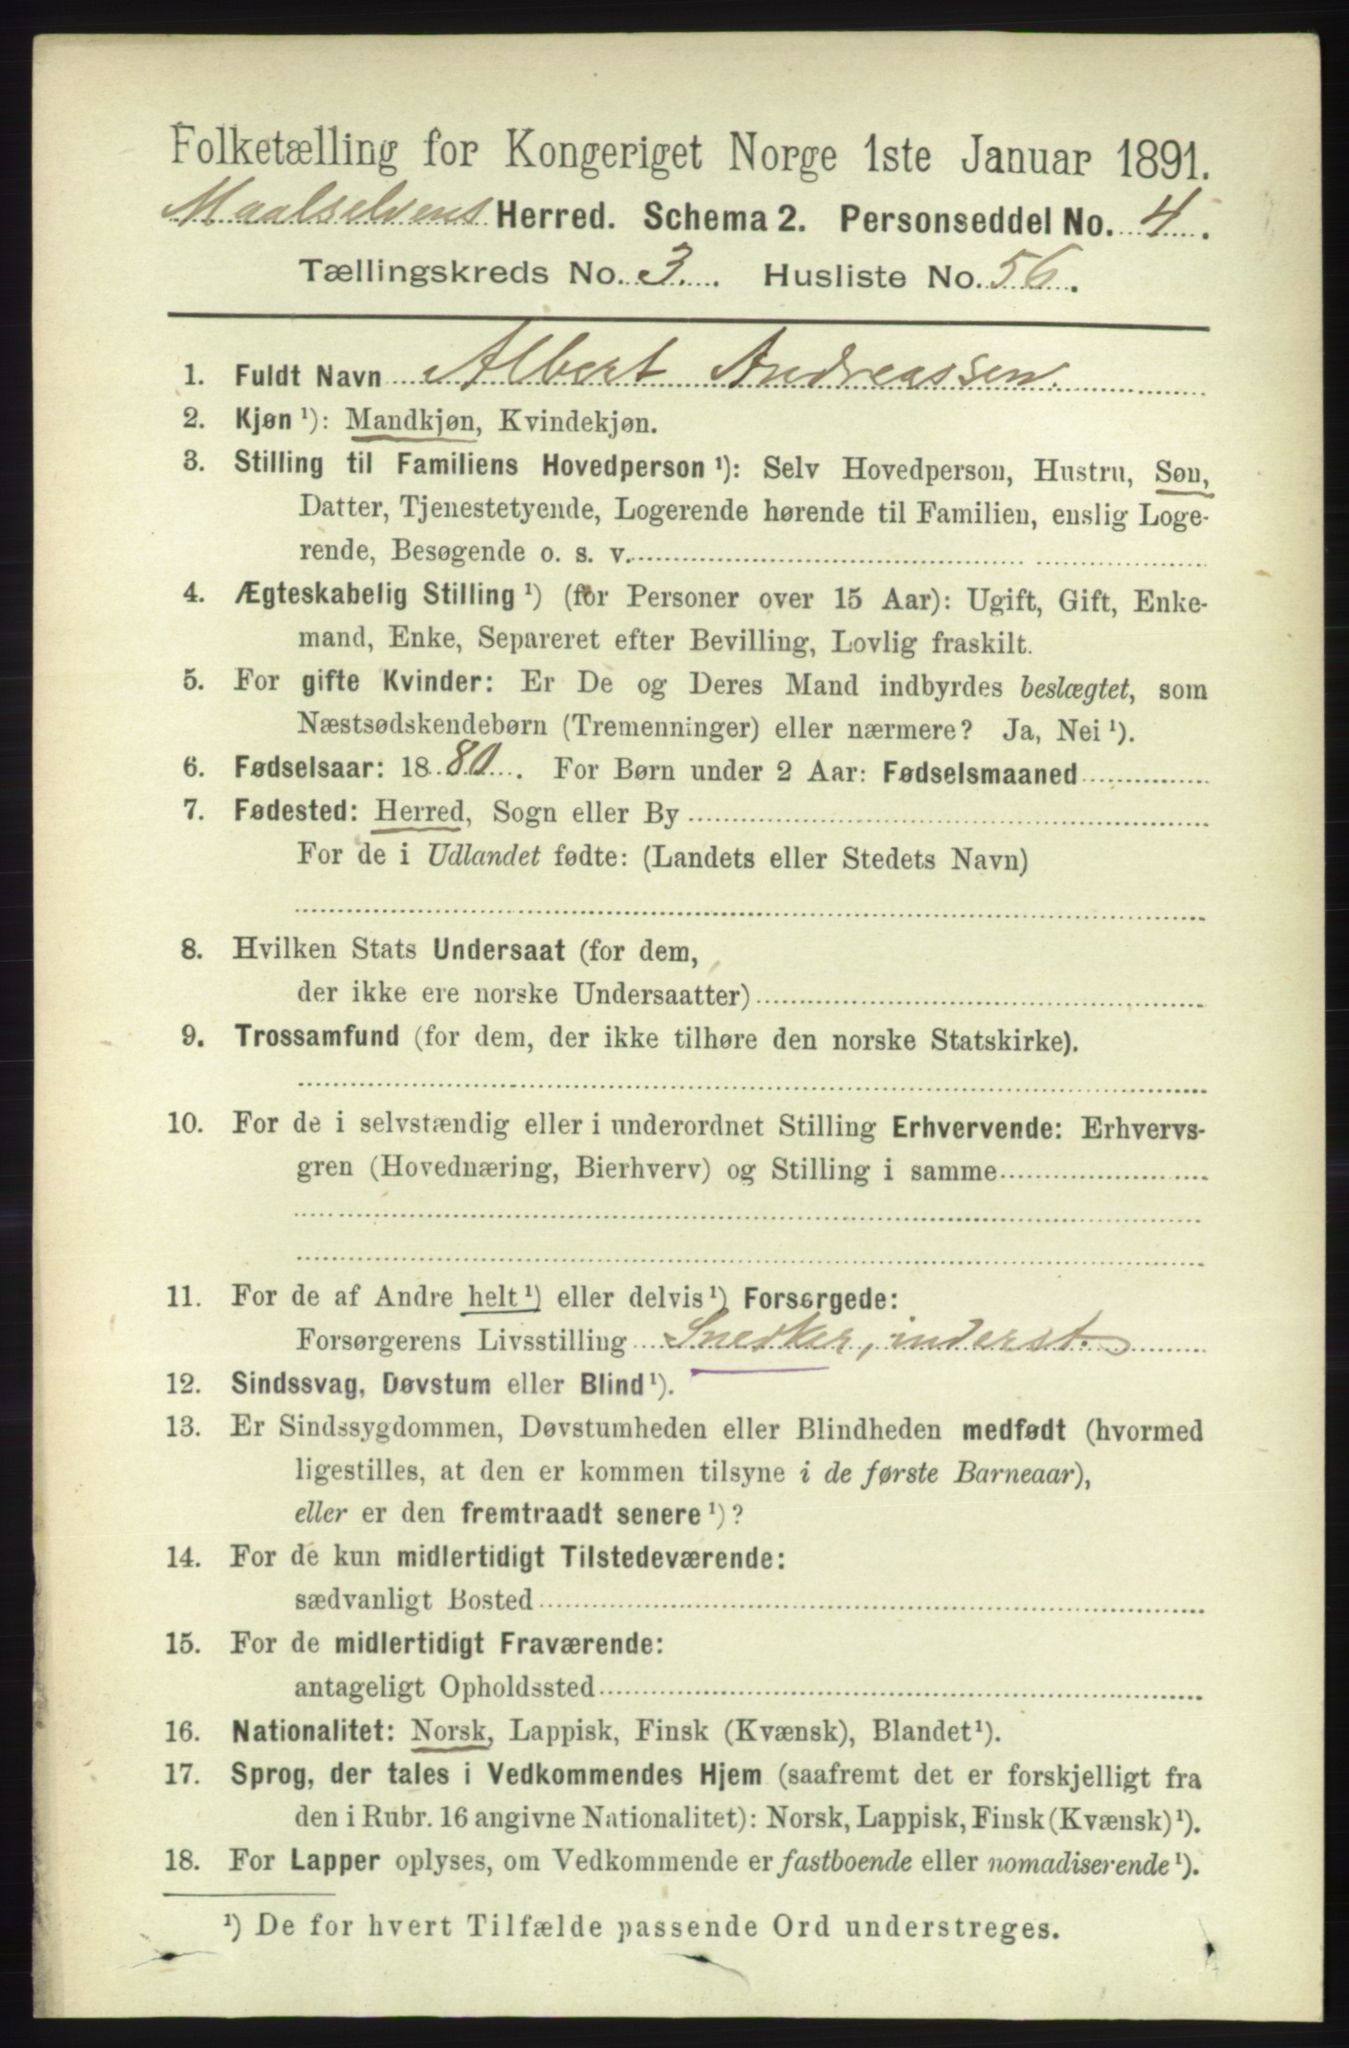 Folketælling for Kongeriget Norge 1ste Januar 1891.
Maalselvens Herred. Schema 2. Personseddel No. 4.
Tællingskreds No. 3. Husliste No. 56.
1. Fuldt Navn Albert Andreassen.
2. Kjøn ¹): Mandkjøn, Kvindekjøn.
3. Stilling til Familiens Hovedperson ¹): Selv Hovedperson, Hustru, Søn,
Datter, Tjenestetyende, Logerende hørende til Familien, enslig Loge-
rende, Besøgende o. s. v.
4. Ægteskabelig Stilling ¹) (for Personer over 15 Aar): Ugift, Gift, Enke-
mand, Enke, Separeret efter Bevilling, Lovlig fraskilt.
5. For gifte Kvinder: Er De og Deres Mand indbyrdes beslægtet, som
Næstsødskendebørn (Tremenninger) eller nærmere? Ja, Nei ¹).
6. Fødselsaar: 1880. For Børn under 2 Aar: Fødselsmaaned
7. Fødested: Herred, Sogn eller By
For de i Udlandet fødte: (Landets eller Stedets Navn)
8. Hvilken Stats Undersaat (for dem,
der ikke ere norske Undersaatter)
9. Trossamfund (for dem, der ikke tilhøre den norske Statskirke).
10. For de i selvstændig eller i underordnet Stilling Erhvervende: Erhvervs-
gren (Hovednæring, Bierhverv) og Stilling i samme
11. For de af Andre helt ¹) eller delvis ¹) Forsørgede:
Forsørgerens Livsstilling Snedker, inderst.
12. Sindssvag, Døvstum eller Blind ¹).
13. Er Sindssygdommen, Døvstumheden eller Blindheden medfødt (hvormed
ligestilles, at den er kommen tilsyne i de første Barneaar),
eller er den fremtraadt senere ¹)?
14. For de kun midlertidigt Tilstedeværende:
sædvanligt Bosted
15. For de midlertidigt Fraværende:
antageligt Opholdssted
16. Nationalitet: Norsk, Lappisk, Finsk (Kvænsk), Blandet ¹).
17. Sprog, der tales i Vedkommendes Hjem (saafremt det er forskjelligt fra
den i Rubr. 16 angivne Nationalitet): Norsk, Lappisk, Finsk (Kvænsk) ¹).
18. For Lapper oplyses, om Vedkommende er fastboende eller nomadiserende ¹).
¹) De for hvert Tilfælde passende Ord understreges.